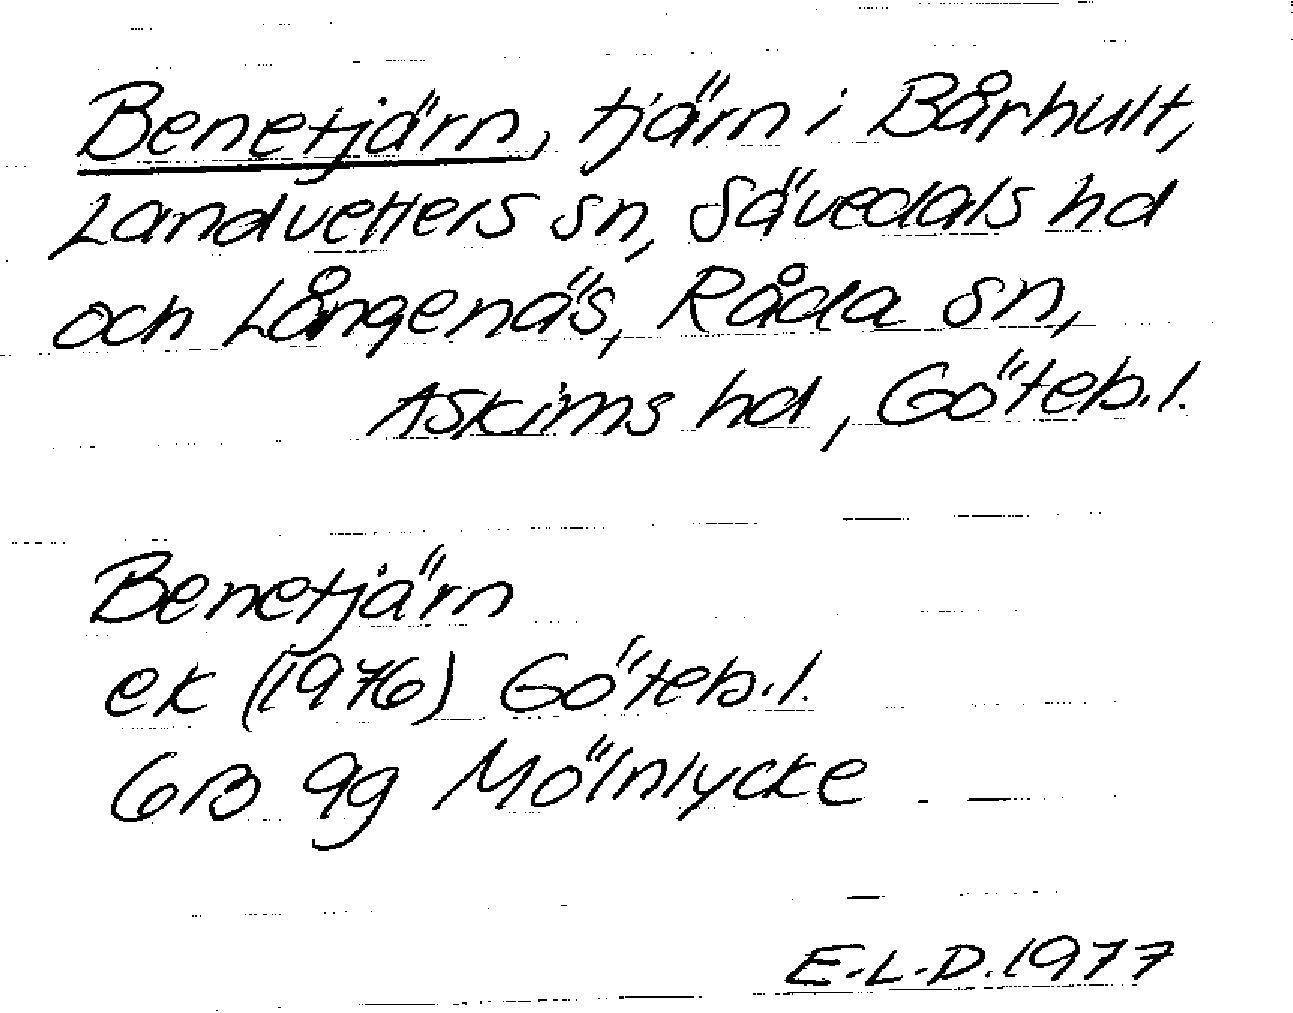 Benetjärn, tjärn i Bårhult,
Landvetters sn, Sävedals hd
och Långenäs, Råda sn,
Askims hd, Göteb.l.
Benetjärn
ek (1976) Göteb.l.
6B 9g Mölnlycke
E.L.D. 1977